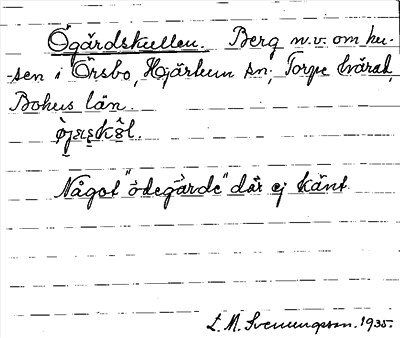 Ögårdskullen. Berg n.v. om hu-
sen i Örsbo, Hjärtum sn; Torpe härad,
Bohus län.
Något "ödegärde" där ej känt.
L. M. Svenungsson. 1935.